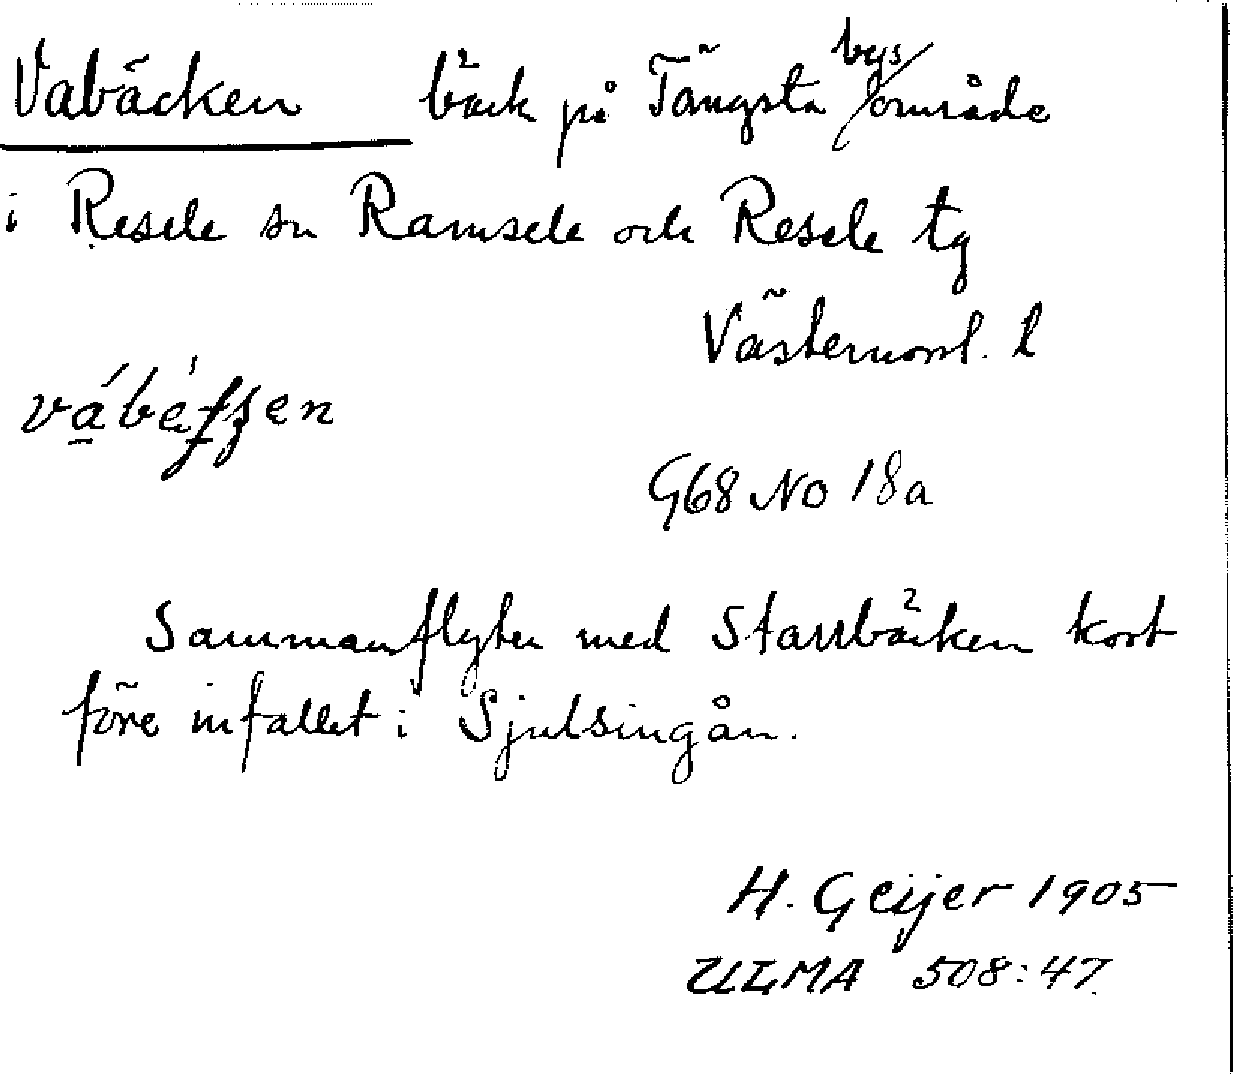 Vabäcken bäck på Tängsta bys område
i Resele sn Ramsele och Resele tg
Västernorrl. l
G68 NO 18a
Sammanflyter med Starrbäcken kort
före infallet i Sjulsingån.
H. Geijer 1905
ULMA 508:47